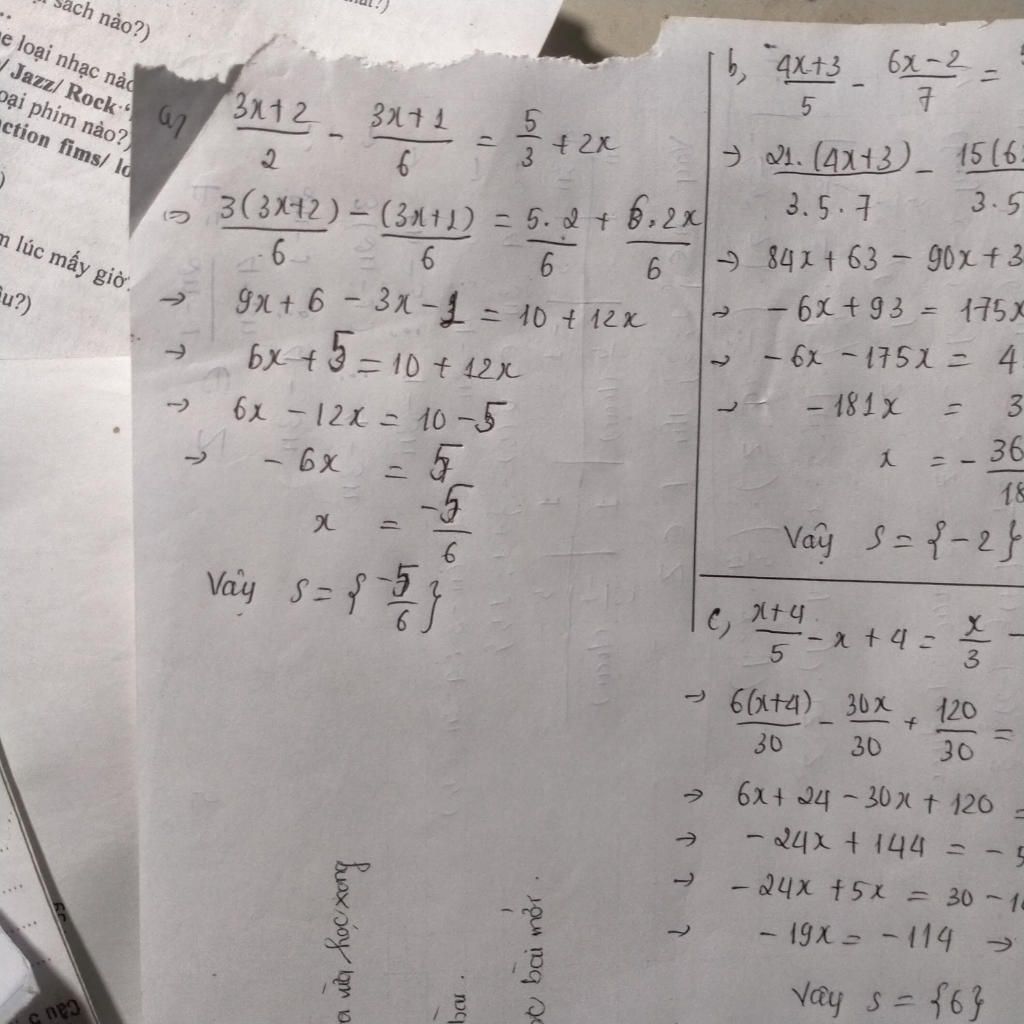 sách nào?)
loại nhạc nào
/ Jazz/ Rock
oại phim nào?)
ction fims/
m lúc mấy giờ
âu?)
a, (3x+2)/2 - (3x+1)/6 = 5/3 + 2x
=> 3(3x+2)/6 - (3x+1)/6 = 5.2/6 + 6.2x/6
→ 9x+6 - 3x-1 = 10 + 12x
→ 6x + 5 = 10 + 12x
→ 6x - 12x = 10 - 5
→ - 6x = 5
x = -5/6
Vây S = { -5/6 }
b, (4x+3)/5 - (6x-2)/7 =
→ 21.(4x+3)/3.5.7 - 15(6x/3.5
→ 84x + 63 - 90x + 3
→ - 6x + 93 = 175x
→ - 6x - 175x = 4
→ - 181x = 3
x = - 36/18
Vậy S = {-2}
c, (x+4)/5 - x + 4 = x/3 -
→ 6(x+4)/30 - 30x/30 + 120/30 =
→ 6x + 24 - 30x + 120 =
→ - 24x + 144 = - 5
→ - 24x + 5x = 30 - 1
→ - 19x = - 114 →
Vây S = {6}
a vừa học xong
bài.
bài mới.
Câu 5